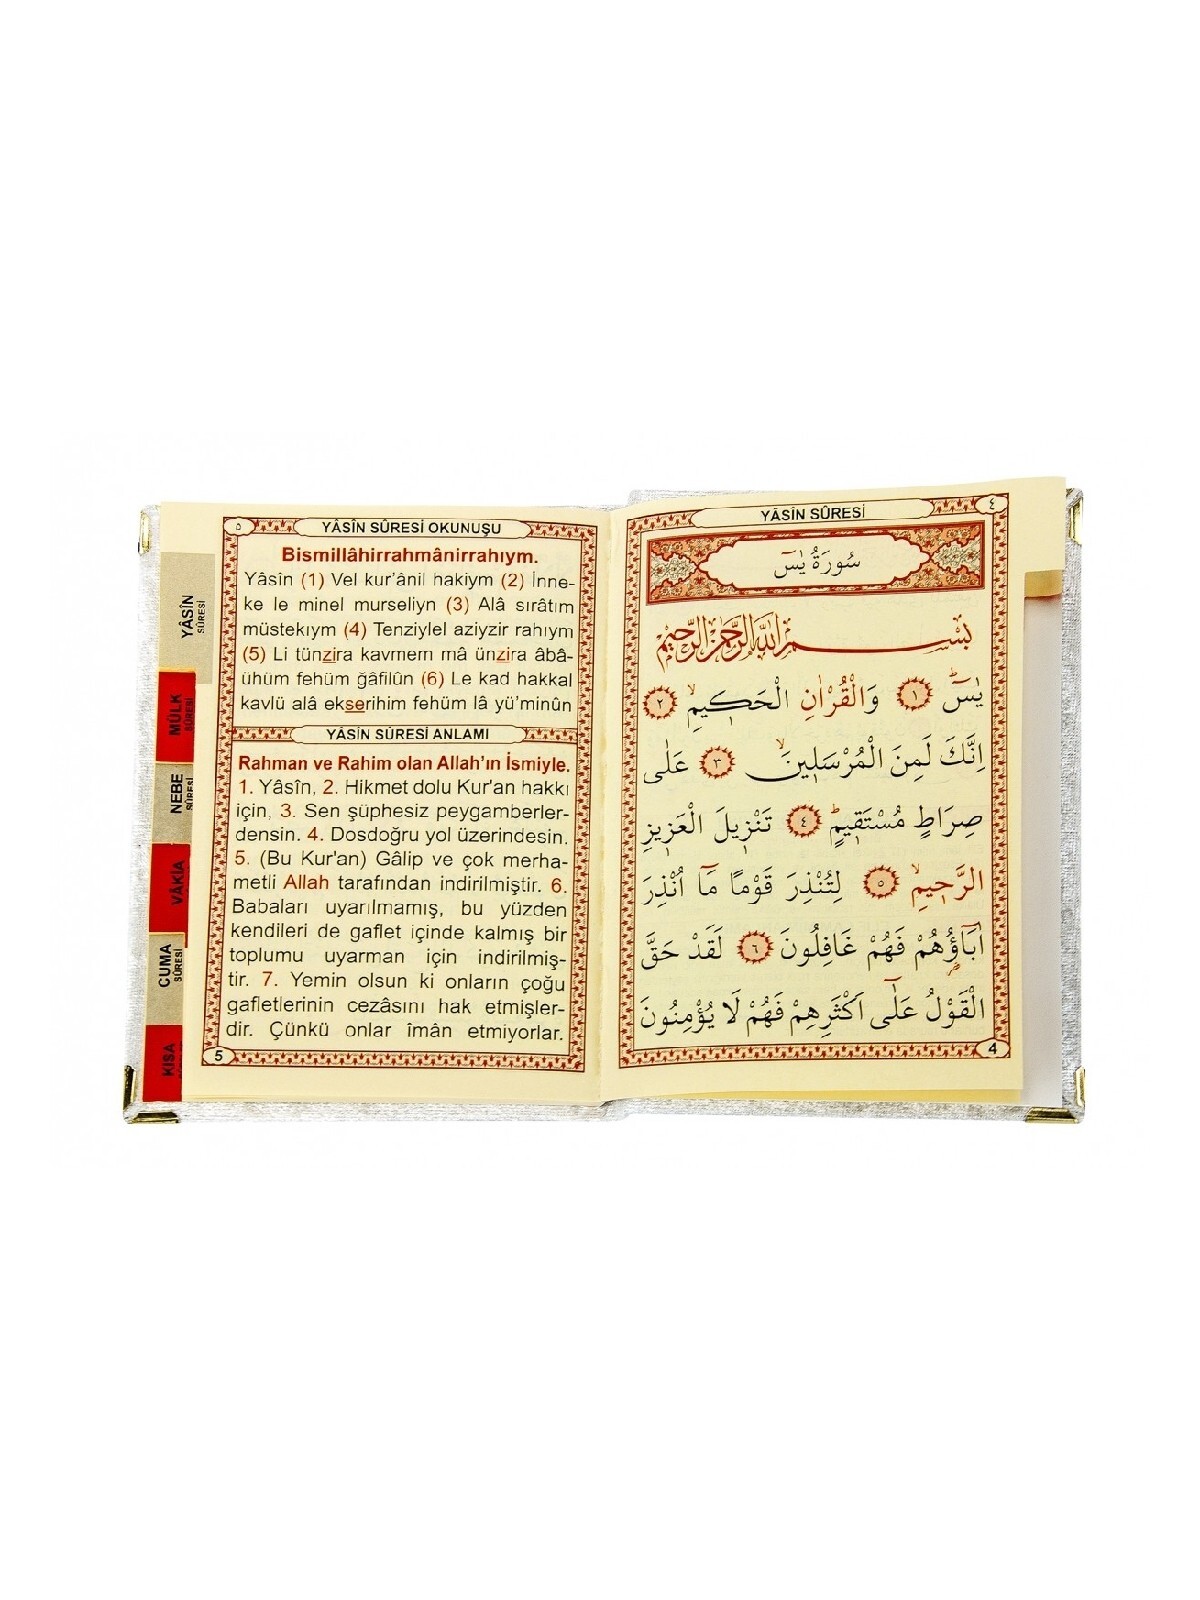 ٥ YÂSÎN SÛRESİ OKUNUŞU
Bismillâhirrahmânirrahıym.
Yâsin (1) Vel kur'ânil hakiym (2) İnne-
ke le minel murseliyn (3) Alâ sırâtım
müstekıym (4) Tenziylel aziyzir rahıym
(5) Li tünzira kavmem mâ ünzira âbâ-
ühüm fehüm ğâfilûn (6) Le kad hakkal
kavlü alâ ekserihim fehüm lâ yü'minûn
YÂSİN SÛRESİ ANLAMI
Rahman ve Rahim olan Allah'ın İsmiyle.
1. Yâsîn, 2. Hikmet dolu Kur'an hakkı
için, 3. Sen şüphesiz peygamberler-
densin. 4. Dosdoğru yol üzerindesin.
5. (Bu Kur'an) Gâlip ve çok merha-
metli Allah tarafından indirilmiştir. 6.
Babaları uyarılmamış, bu yüzden
kendileri de gaflet içinde kalmış bir
toplumu uyarman için indirilmiş-
tir. 7. Yemin olsun ki onların çoğu
gafletlerinin cezâsını hak etmişler-
dir. Çünkü onlar îmân etmiyorlar.
5
YÂSİN SÛRESİ
MÜLK SÛRESİ
NEBE SÛRESİ
VÂKIA
CUMA SÛRESİ
KISA
YÂSİN SÛRESİ ٤
سُورَةُ يٰسٓ
بِسْمِ اللّٰهِ الرَّحْمٰنِ الرَّحِيمِ
يٰسٓ ۚ ١ وَالْقُرْاٰنِ الْحَكِيمِۙ ٢
اِنَّكَ لَمِنَ الْمُرْسَلِينَۙ ٣ عَلٰى
صِرَاطٍ مُسْتَقِيمٍۜ ٤ تَنْزِيلَ الْعَزِيزِ
الرَّحِيمِۙ ٥ لِتُنْذِرَ قَوْمًا مَٓا اُنْذِرَ
اٰبَٓاؤُ۬هُمْ فَهُمْ غَافِلُونَ ٦ لَقَدْ حَقَّ
الْقَوْلُ عَلٰٓى اَكْثَرِهِمْ فَهُمْ لَا يُؤْمِنُونَ
4